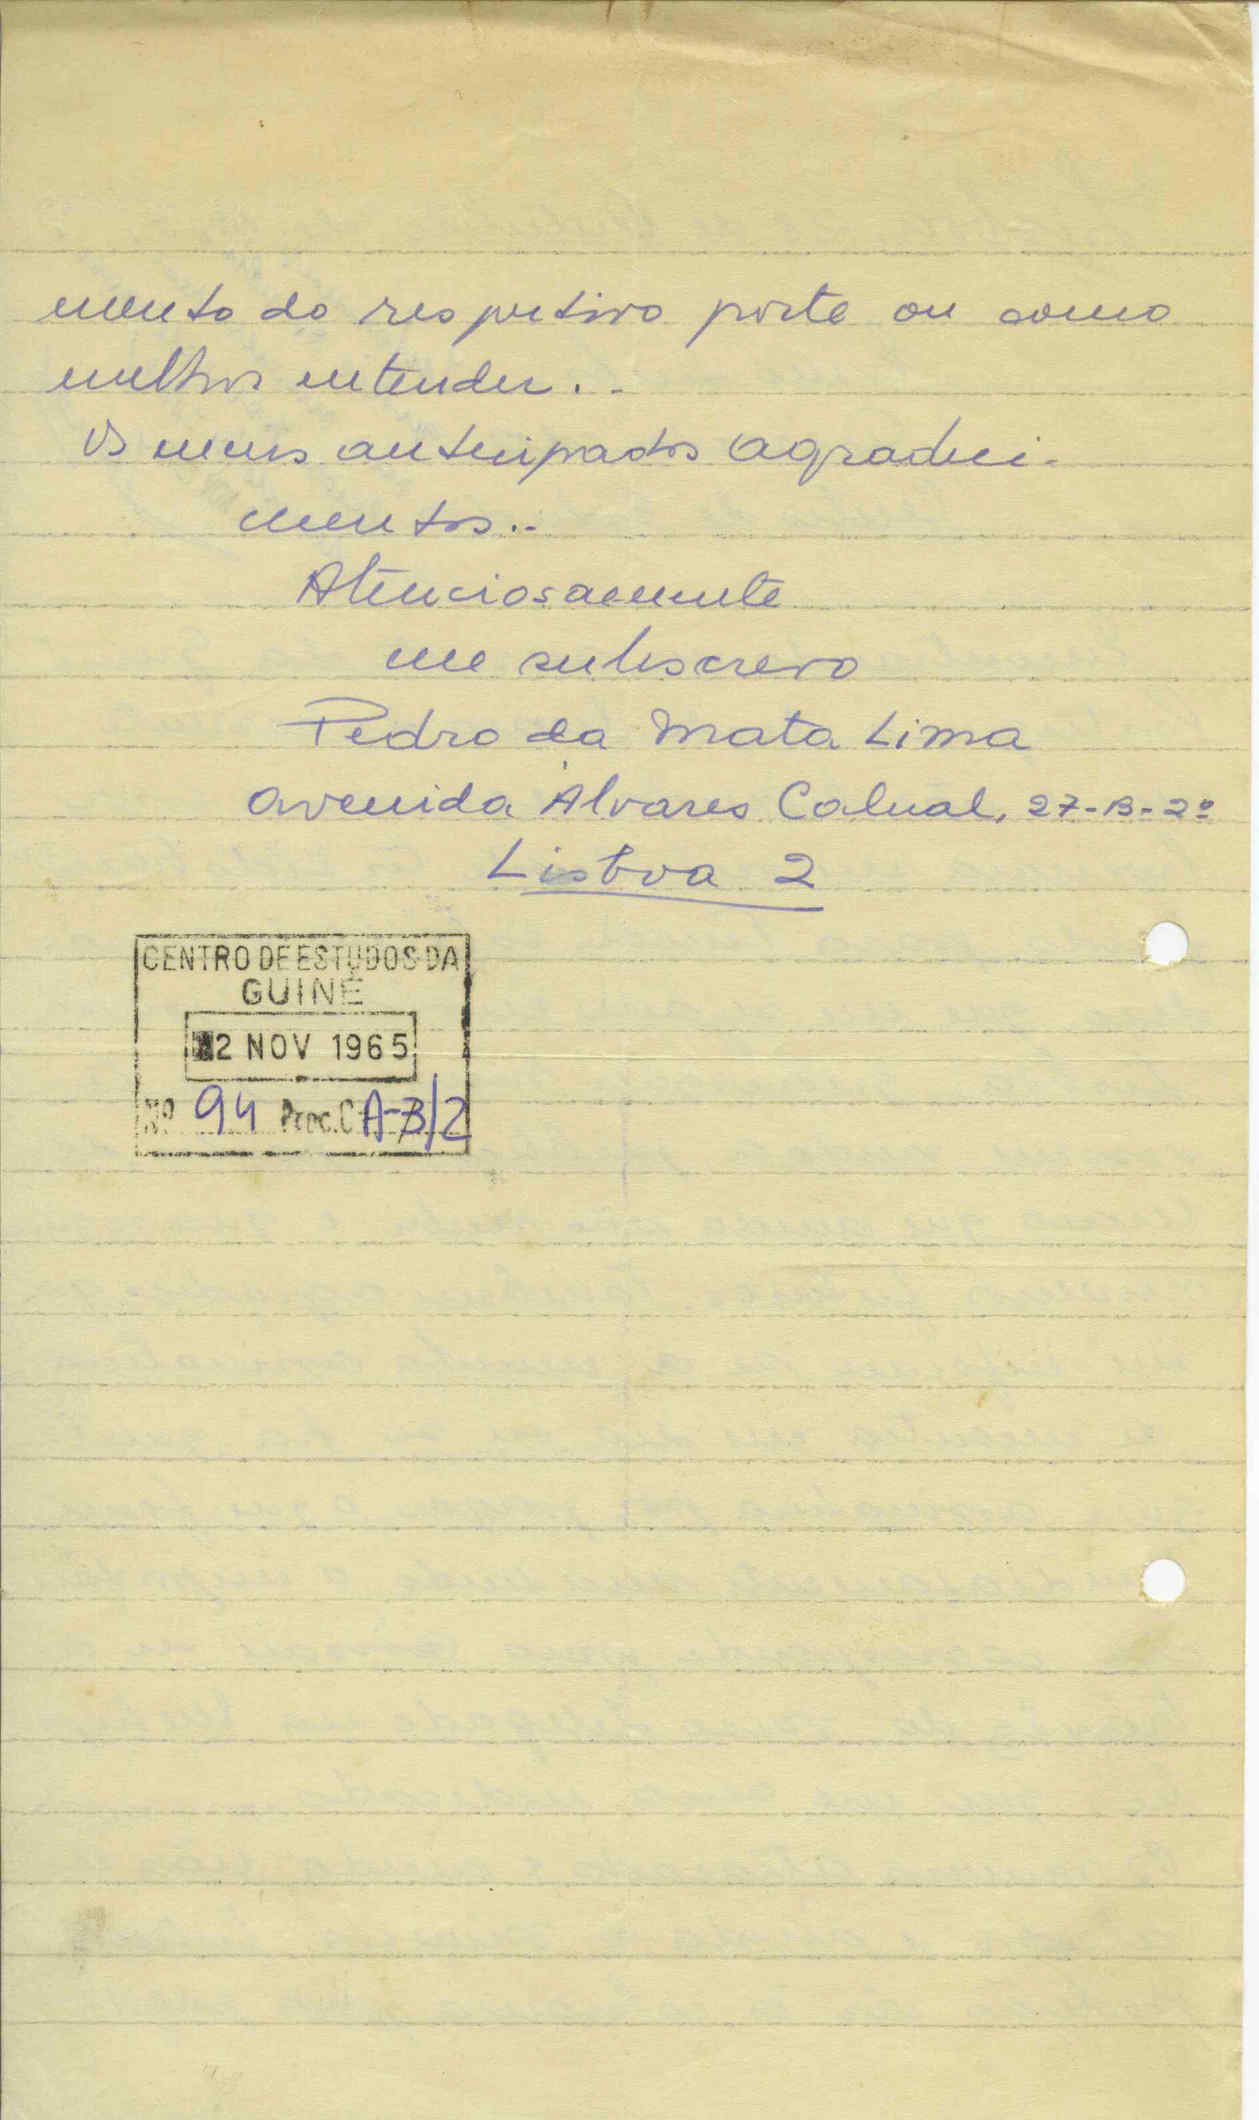 mento do respectivo porte ou como
melhor entender..
Os meus antecipados agradeci-
mentos..
Atenciosamente
me subscrevo
Pedro da Mata Lima
Avenida Álvares Cabral, 27-B-2º
Lisboa 2
CENTRO DE ESTUDOS DA
GUINÉ
2 NOV 1965
Nº 94 Proc. C A-3/2